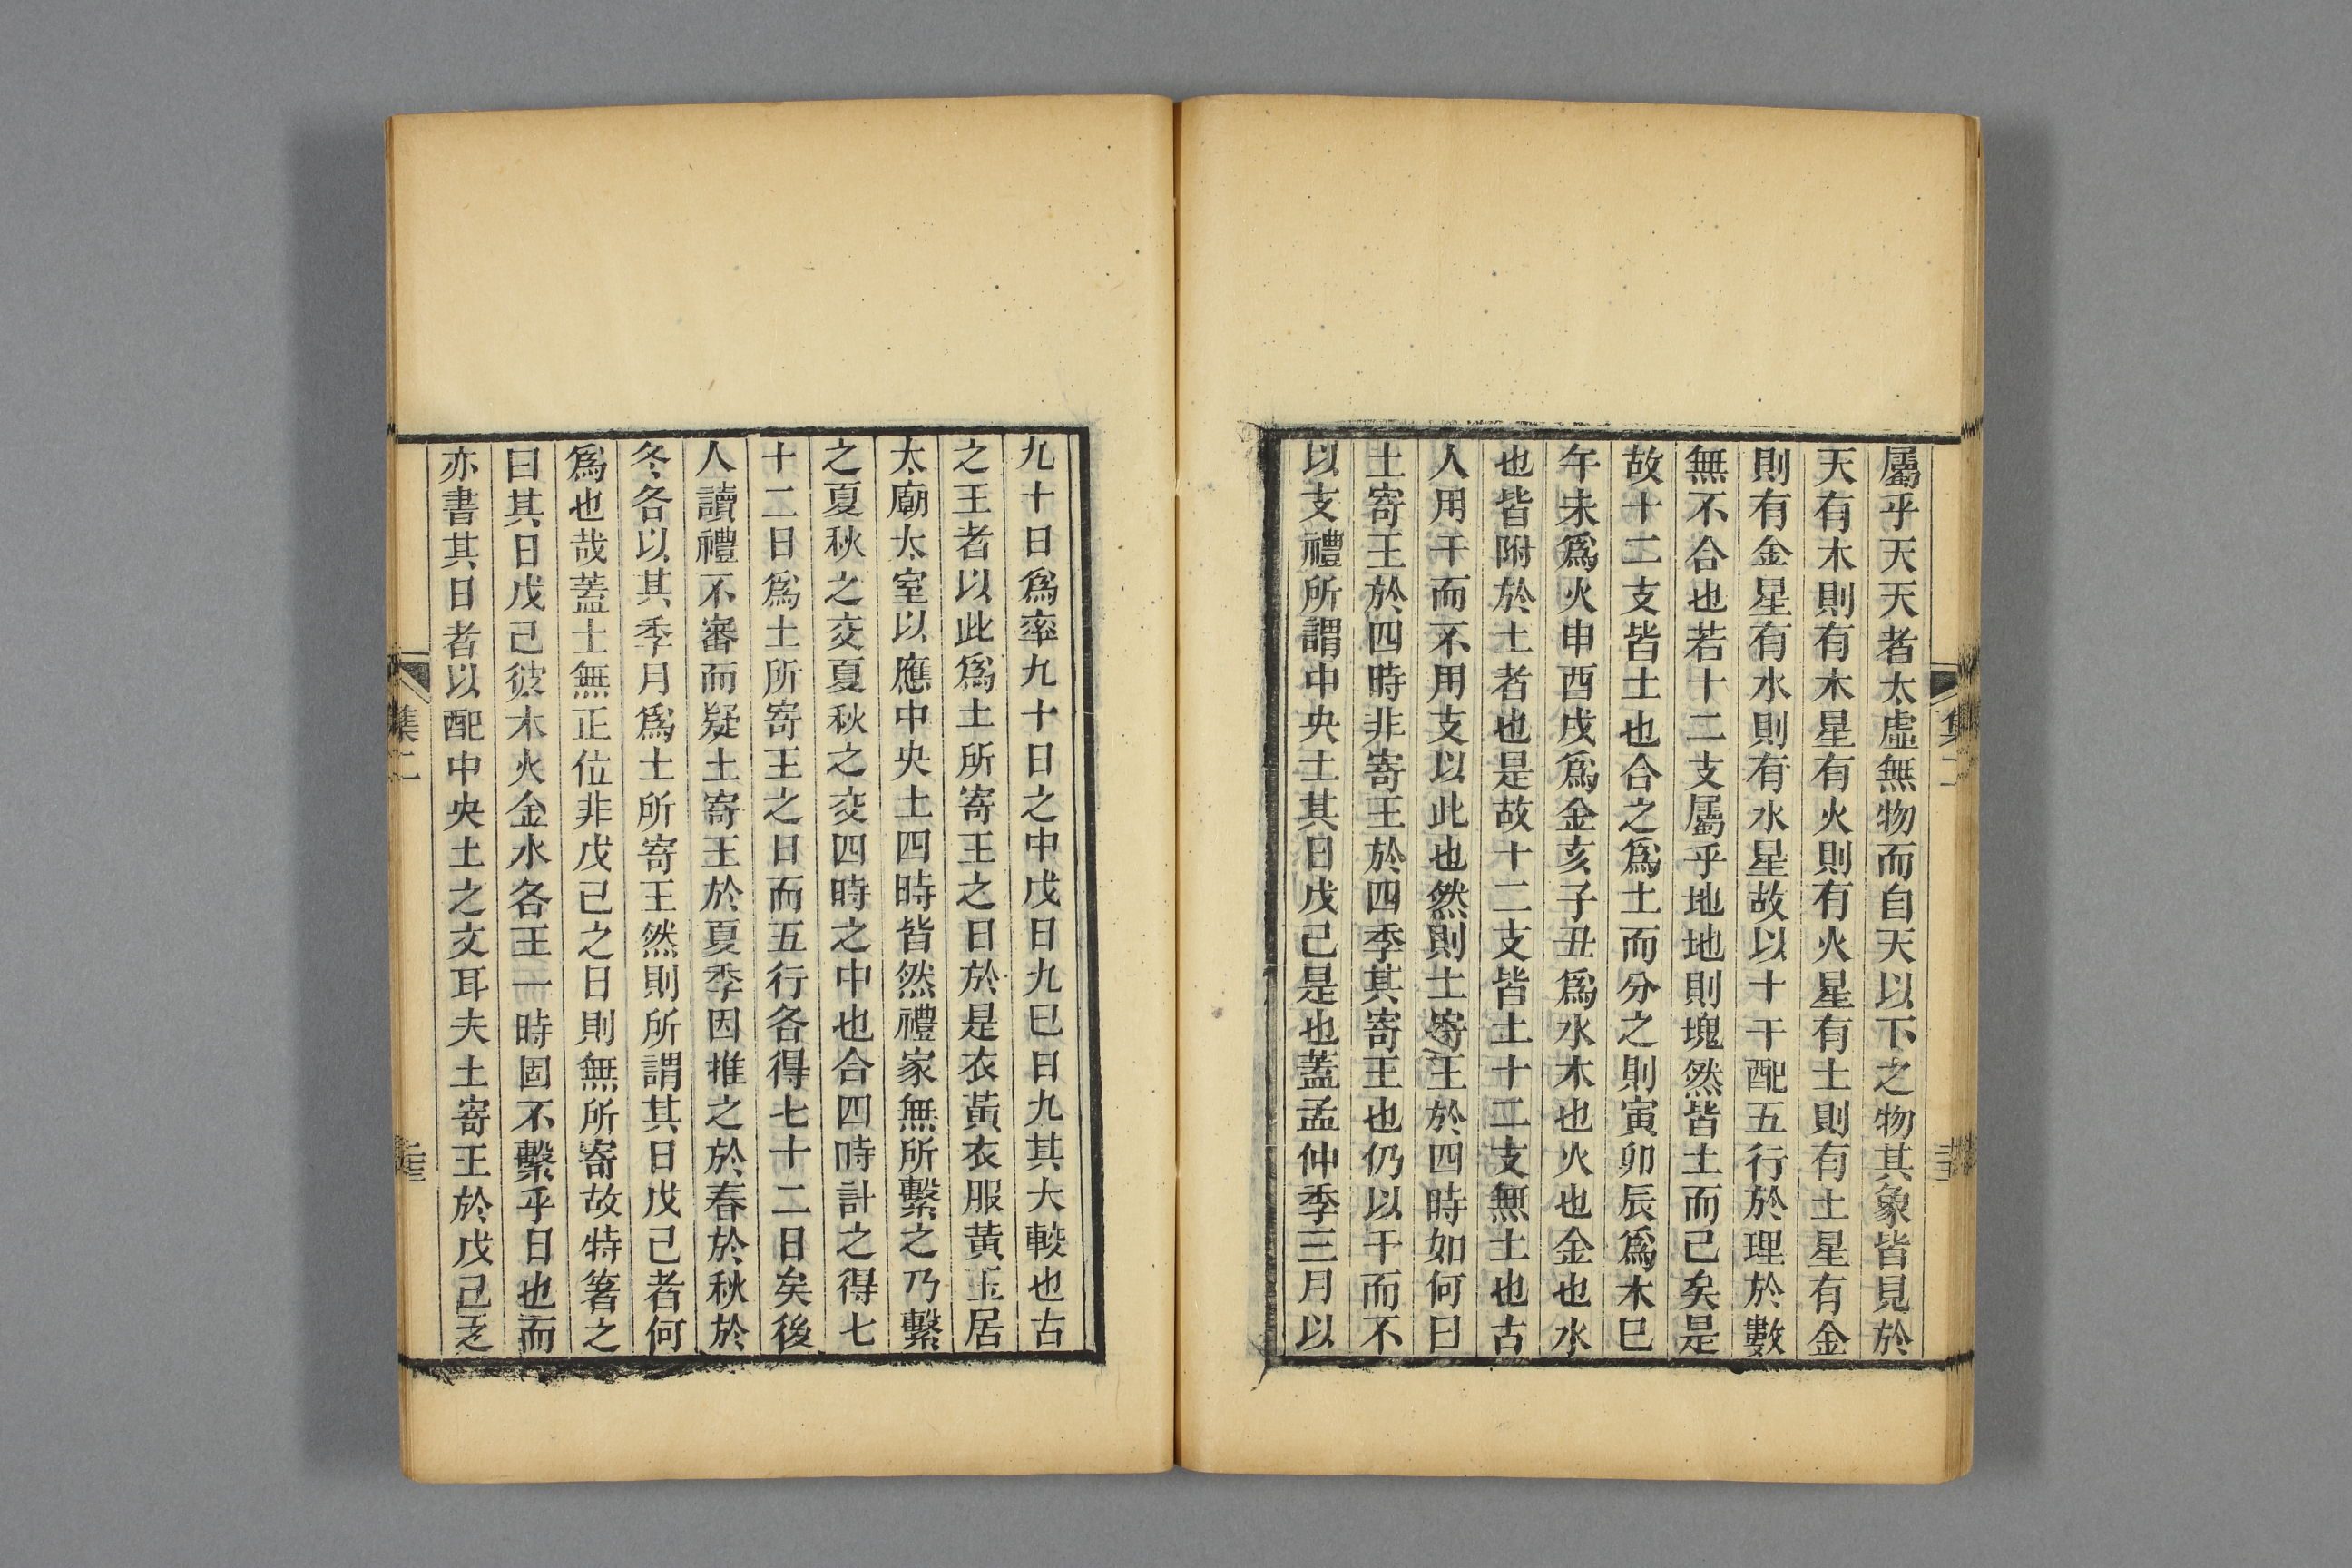 屬乎天天者太虛無物而自天以下之物其象皆見於
天有木則有木星有火則有火星有土則有土星有金
則有金星有水則有水星故以十干配五行於理於數
無不合也若十二支屬乎地地則塊然皆土而已矣是
故十二支皆土也合之爲土而分之則寅卯辰爲木巳
午未爲火申酉戌爲金亥子丑爲水木也火也金也水
也皆附於土者也是故十二支皆土十二支無土也古
人用干而不用支以此也然則土寄王於四時如何曰
土寄王於四時非寄王於四季其寄王也仍以干而不
以支禮所謂中央土其日戊己是也蓋孟仲季三月以
九十日爲率九十日之中戊日九巳日九其大較也古
之王者以此爲土所寄王之日於是衣黃衣服黃玉居
太廟太室以應中央土四時皆然禮家無所繫之乃繫
之夏秋之交夏秋之交四時之中也合四時計之得七
十二日爲土所寄王之日而五行各得七十二日矣後
人讀禮不審而疑土寄王於夏季因推之於春於秋於
冬各以其季月爲土所寄王然則所謂其日戊己者何
爲也哉蓋土無正位非戊己之日則無所寄故特箸之
曰其日戊己彼木火金水各王一時固不繫乎日也而
亦書其日者以配中央土之文耳夫土寄王於戊己
集二
集二